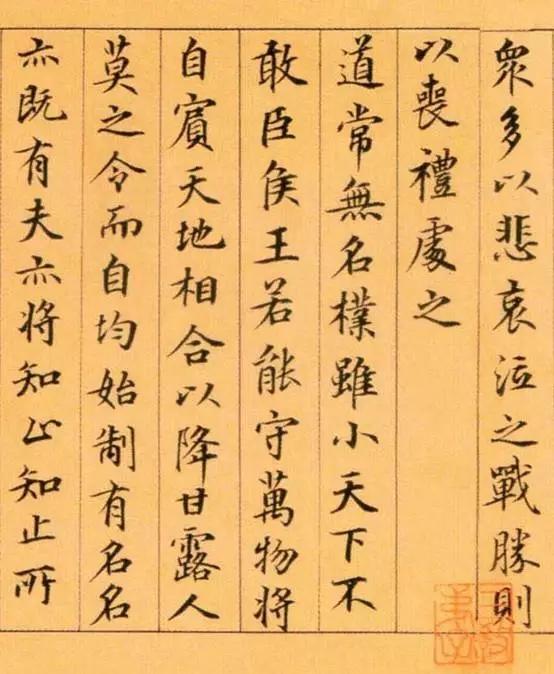 衆多以悲哀泣之戰勝則
以喪禮處之
道常無名樸雖小天下不
敢臣侯王若能守萬物将
自賓天地相合以降甘露人
莫之令而自均始制有名名
亦既有夫亦将知止知止所